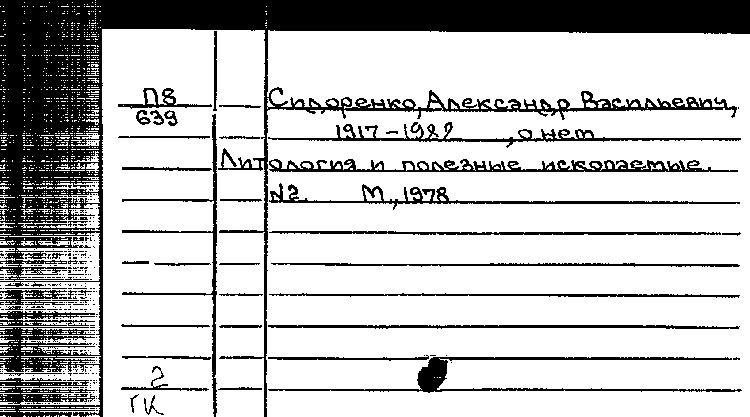 П8
639
Сидоренко, Александр Васильевич,
1917-1982, о нем
Литология и полезные ископаемые.
N2. М., 1978
2
ГК